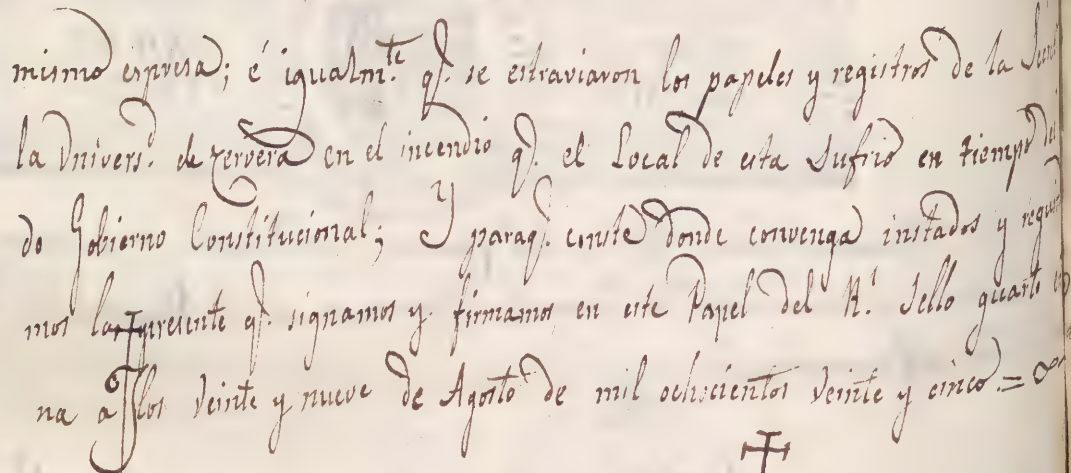 mismo espresa; é igualm.te q.e se estraviaron los papeles y registros de la
la Vnivers.d de zervera en el incendio q.e el Local de esta Sufrió en tiempo
do Gobierno Constitucional; Y paraq.e conste donde convenga instados y
mos la presente q.e signamos y firmamos en este Papel del R.l Sello quarto
na a los Veinte y nueve de Agosto de mil ochocientos Veinte y cinco.=